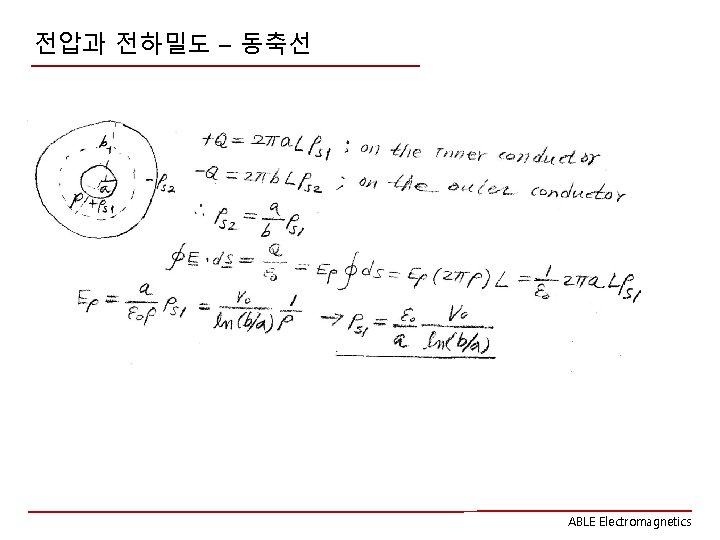 전압과 전하밀도 – 동축선
b
a
ρ
+ρs1
-ρs2
+Q = 2πaLρs1 ; on the inner conductor
-Q = 2πbLρs2 ; on the outer conductor
∴ ρs2 = a/b ρs1
∮E·ds = Q/ε0 = Eρ∮ds = Eρ(2πρ)L = 1/ε0 2πaLρs1
Eρ = a/ε0ρ ρs1 = V0/ln(b/a) 1/ρ → ρs1 = ε0/a V0/ln(b/a)
ABLE Electromagnetics